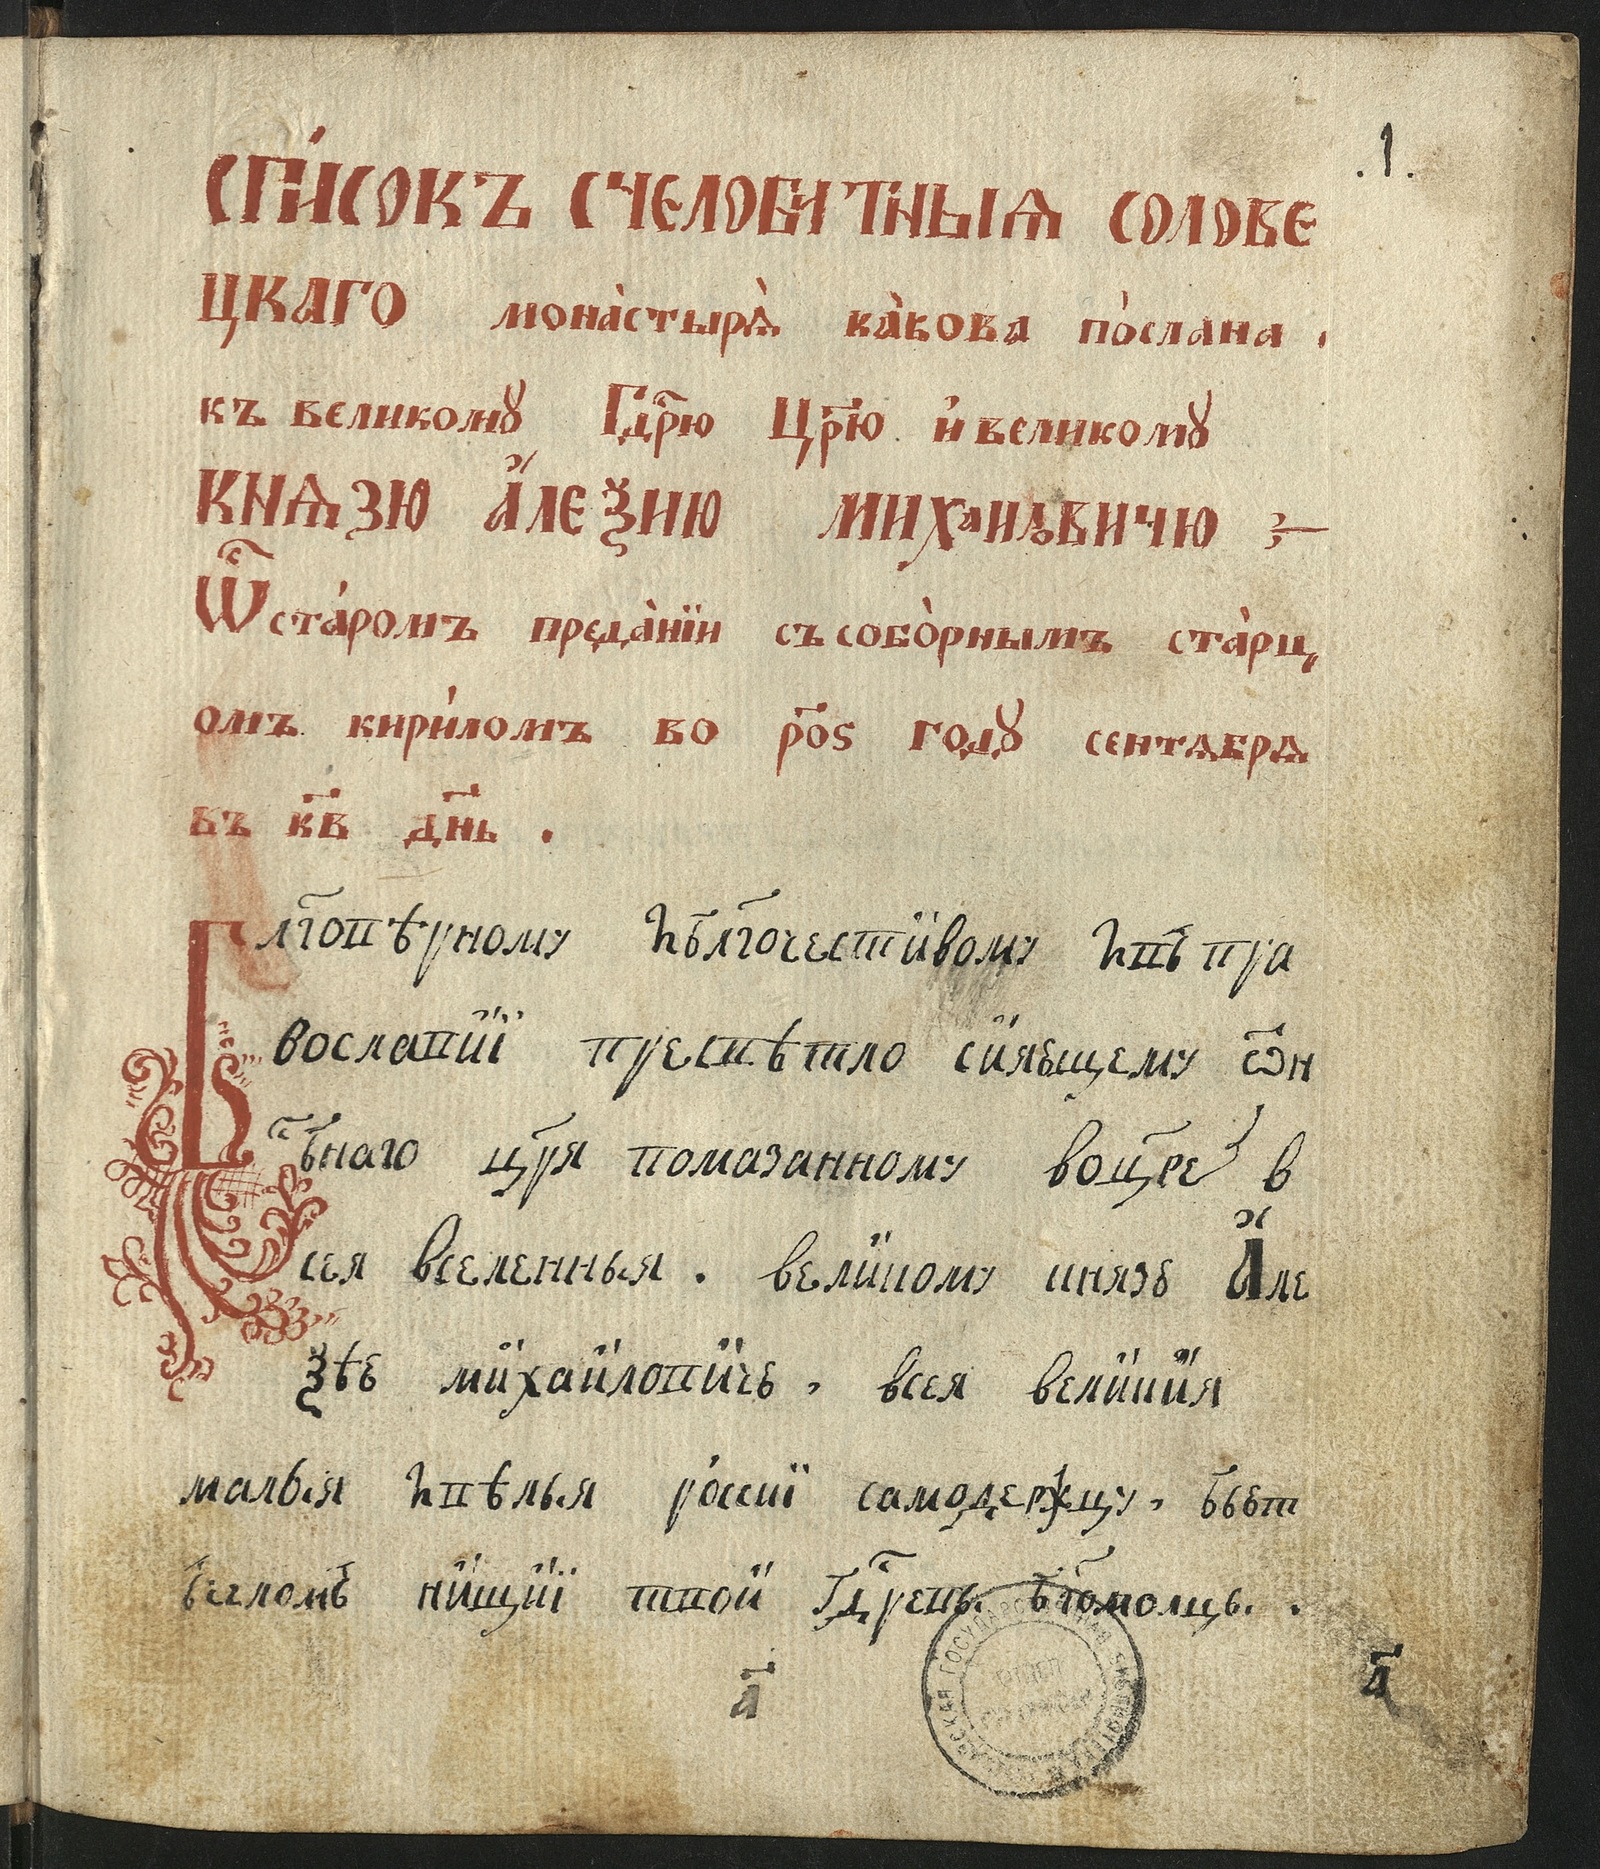 .1.
СПИ́СОКЪ СЧЕЛОБИТНЫѦ СОЛОВЕ
ЦКАГО мона́стырѧ̀ ка̀кова по́слана .
къ великомꙋ Гдр҃ю Цр҃ю и҆ великомꙋ
КНѦЗЮ А҆́ЛЕѮИЮ МИХАИЛОВИЧЮ
Ѿ ста́ромъ преда́нїи съ собо̀рнымъ ста́рц,
омъ кири́ломъ во р҃ос годꙋ сентѧбрѧ
въ к҃в дн҃ь .
Бл҃говѣрному и҆бл҃гочестивому и҆въ пра
вославїи пресвѣтло сияющему ѿн
бс҃наго цр҃я помазанному воцр҃е в
сея вселенныя . великому князю А҆́ле
ѯѣю михаиловичю , всея великия
малыя и҆вѣлыя ро́ссиї самодержцу , бьют
челомъ нищиї твои гдр҃евы бг҃омолцы .
а҃
а҃
ГОСУДАРСТВЕННАЯ
ОТДЕЛ